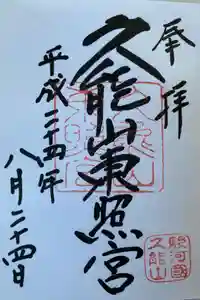 奉拝
久能山東照宮
平成二十四年
八月二十四日
駿河國
久能山